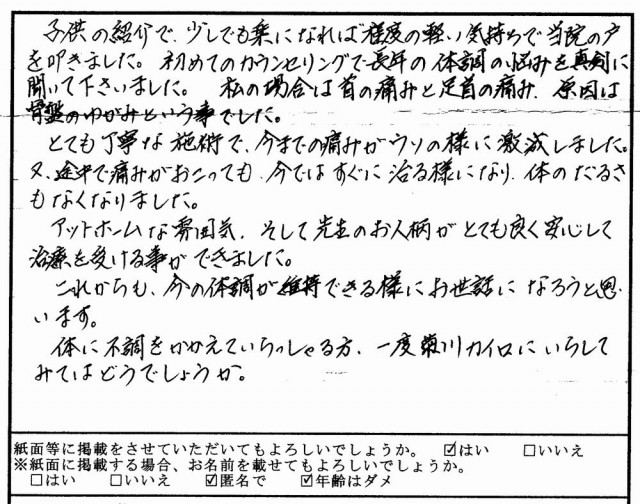 子供の紹介で、少しでも楽になれば程度の軽い気持ちで当院の戸
を叩きました。初めてのカウンセリングで長年の体調の悩みを真剣に
聞いて下さいました。私の場合は首の痛みと足首の痛み、原因は
骨盤のゆがみという事でした。
とても丁寧な施術で、今までの痛みがウソの様に激減しました。
又、途中で痛みがおこっても、今ではすぐに治る様になり、体のだるさ
もなくなりました。
アットホームな雰囲気、そして先生のお人柄がとても良く安心して
治療を受ける事ができました。
これからも、今の体調が維持できる様にお世話になろうと思
います。
体に不調をかかえていらっしゃる方、一度菊川カイロにいらして
みてはどうでしょうか。
紙面等に掲載をさせていただいてもよろしいでしょうか。 ☑はい □いいえ
※紙面に掲載する場合、お名前を載せてもよろしいでしょうか。
□はい □いいえ ☑匿名で ☑年齢はダメ